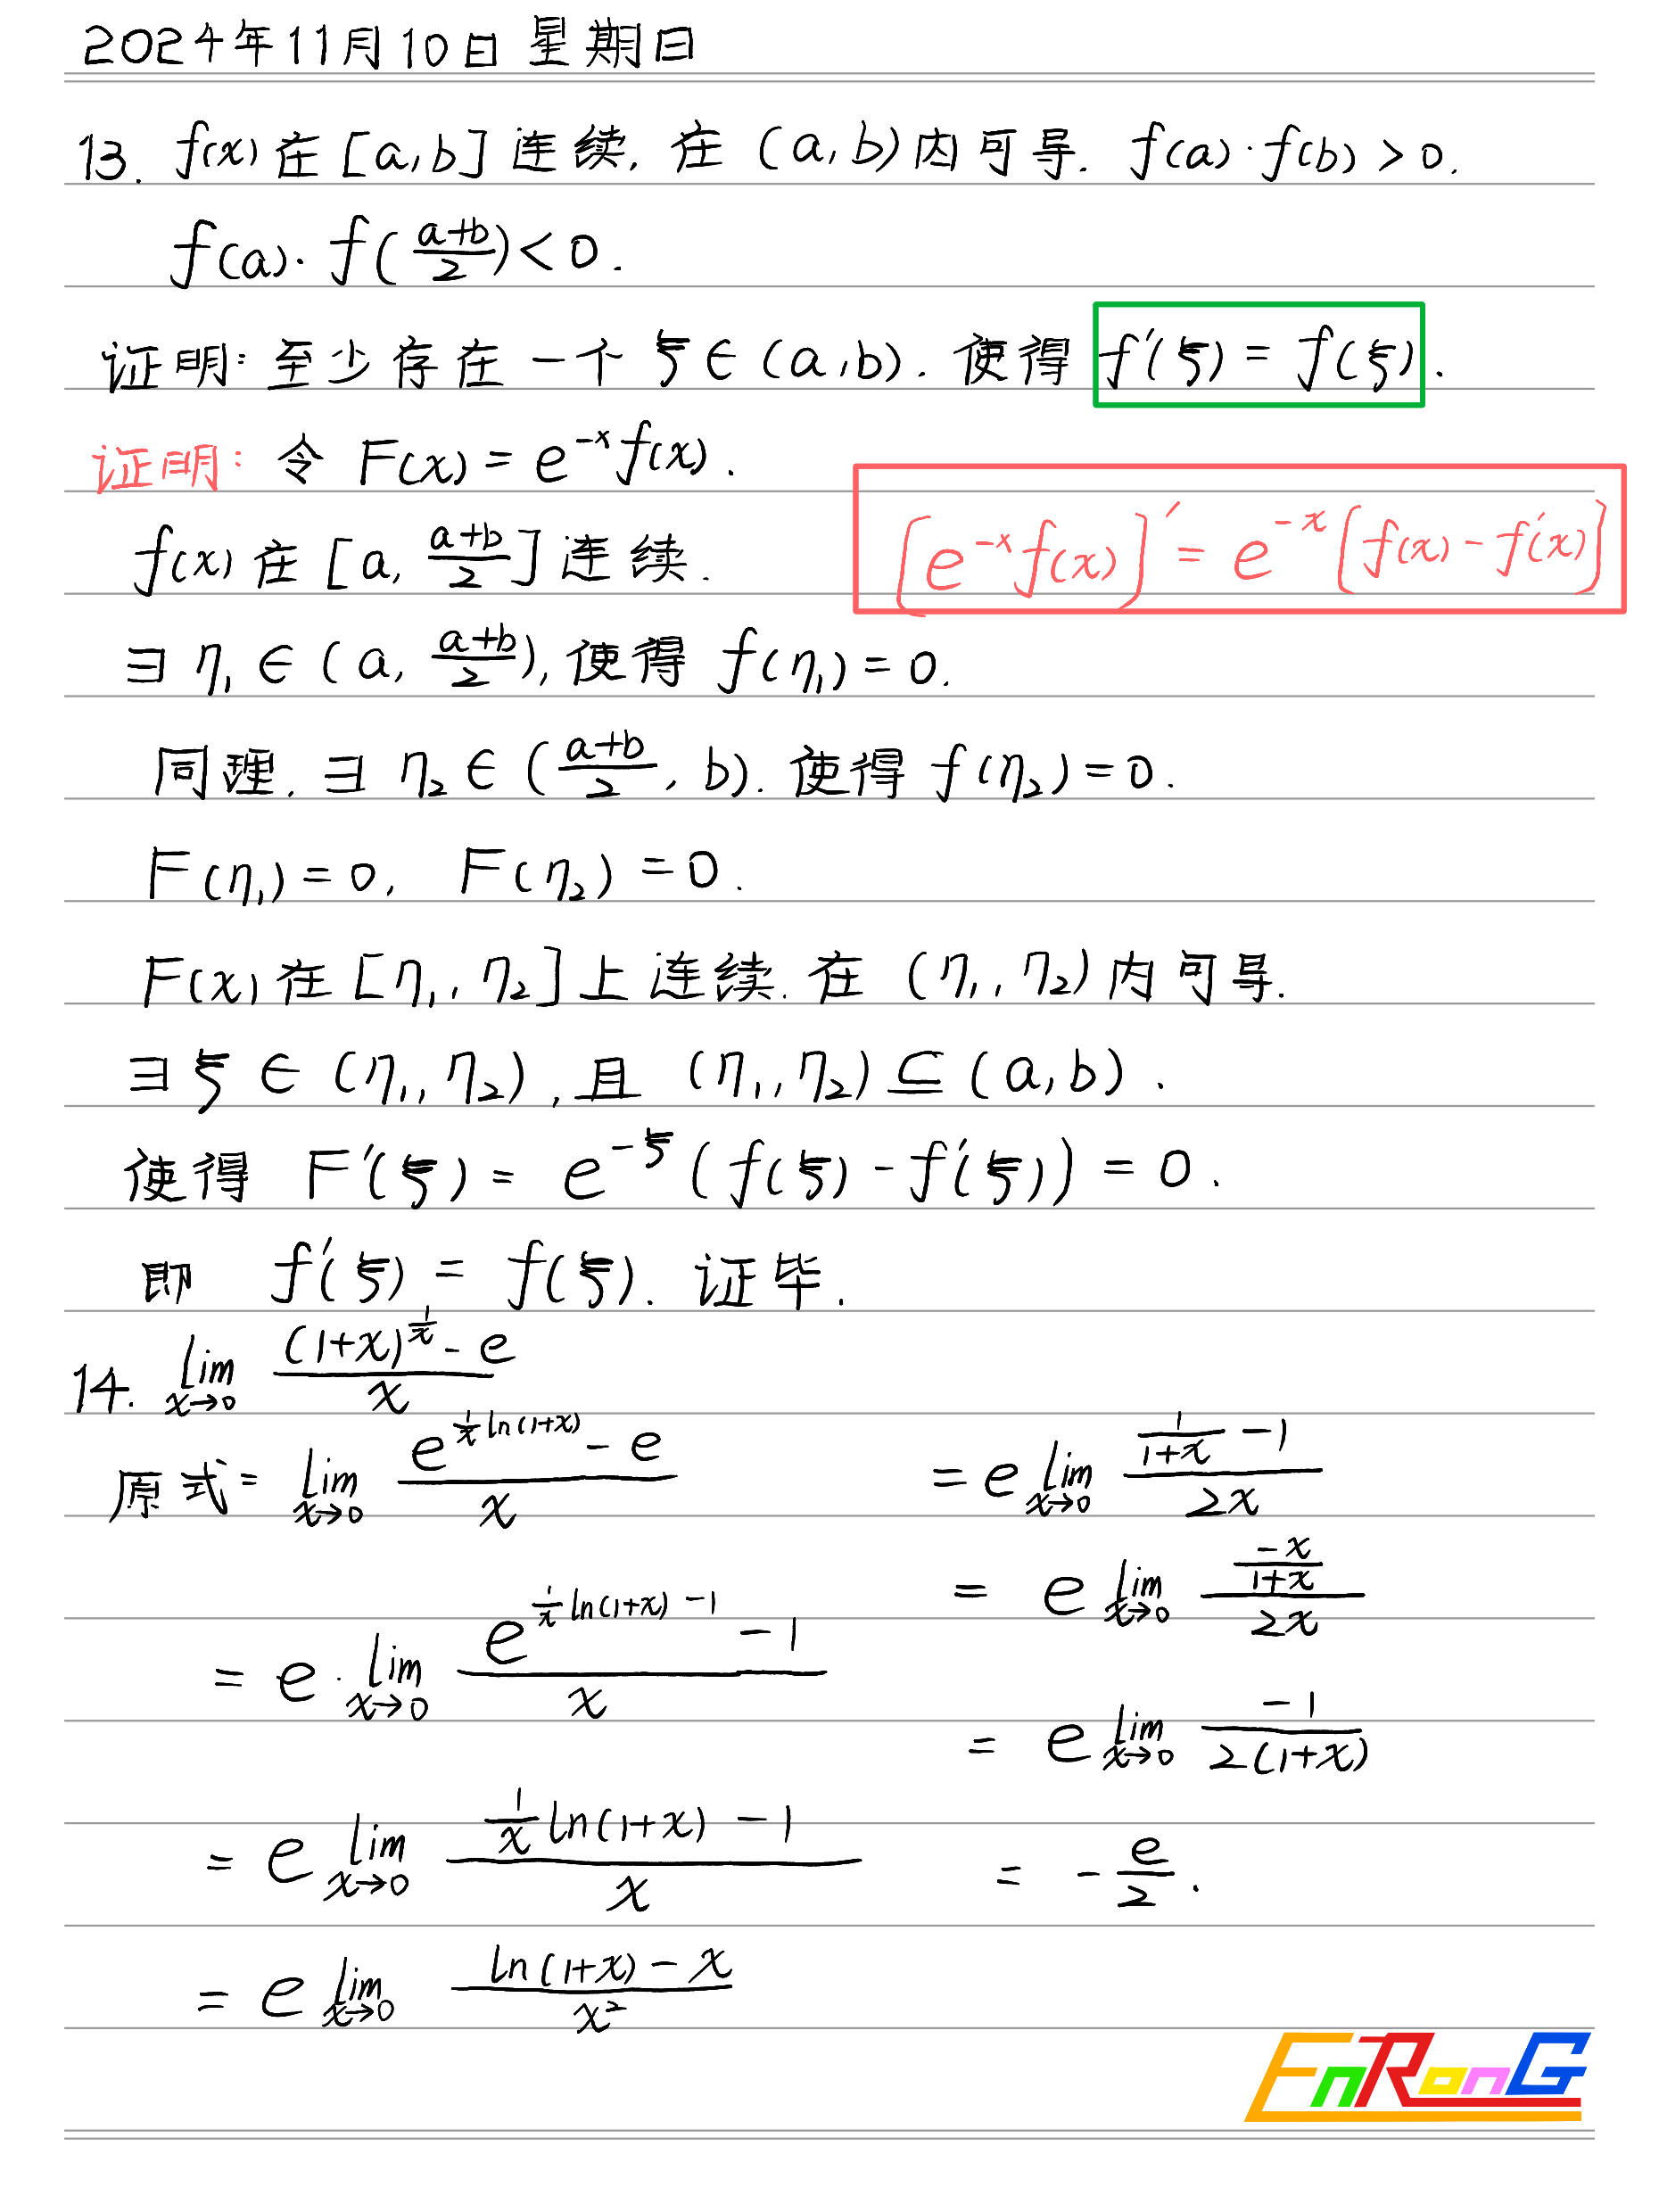 2024年11月10日 星期日
13. f(x) 在 [a,b] 连续. 在 (a,b) 内可导. f(a)·f(b)>0.
f(a)·f((a+b)/2)<0.
证明: 至少存在一个 ξ∈(a,b). 使得 f′(ξ)=f(ξ).
证明: 令 F(x)=e^{-x}f(x).
[e^{-x}f(x)]′=e^{-x}[f(x)-f′(x)]
f(x) 在 [a, (a+b)/2] 连续.
∃ η₁∈(a, (a+b)/2), 使得 f(η₁)=0.
同理. ∃ η₂∈((a+b)/2, b). 使得 f(η₂)=0.
F(η₁)=0, F(η₂)=0.
F(x) 在 [η₁, η₂] 上连续. 在 (η₁, η₂) 内可导.
∃ ξ∈(η₁, η₂), 且 (η₁, η₂)⊆(a,b).
使得 F′(ξ)=e^{-ξ}(f(ξ)-f′(ξ))=0.
即 f′(ξ)=f(ξ). 证毕.
14. lim_{x→0} ((1+x)^{1/x}-e)/x
原式= lim_{x→0} (e^{(1/x)ln(1+x)}-e)/x
= e·lim_{x→0} (e^{(1/x)ln(1+x)-1}-1)/x
= e lim_{x→0} ((1/x)ln(1+x)-1)/x
= e lim_{x→0} (ln(1+x)-x)/x²
= e lim_{x→0} (1/(1+x)-1)/(2x)
= e lim_{x→0} (-x/(1+x))/(2x)
= e lim_{x→0} -1/(2(1+x))
= -e/2.
EnRonG